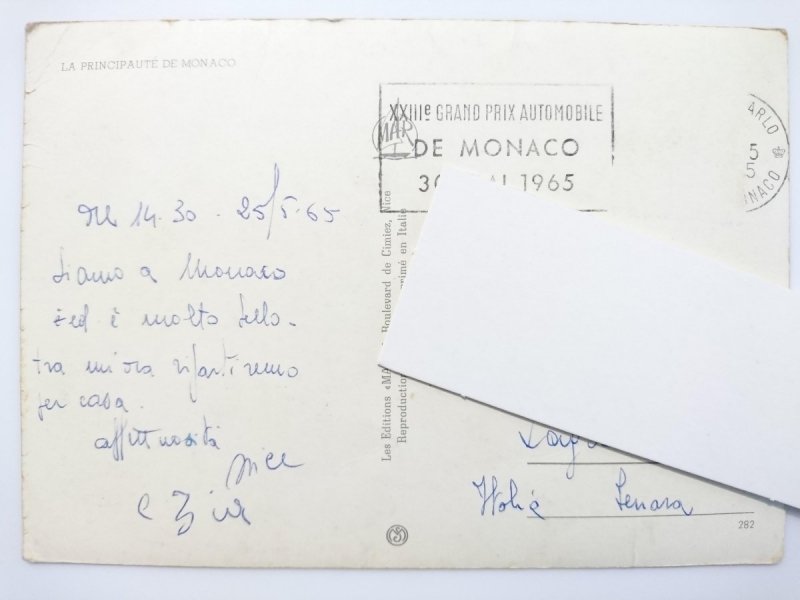 LA PRINCIPAUTÉ DE MONACO
XXIIIe GRAND PRIX AUTOMOBILE
DE MONACO
30 MAI 1965
ARLO
5
5
NACO
MAR
14.30 - 25/5.65
Siamo a Monaco
ed è molto bello -
tra un'ora ripartiremo
per casa.
affettuosità
e Zia
Les Editions «MA Boulevard de Cimiez, Nice
Reproduction imprimé en Italie
282